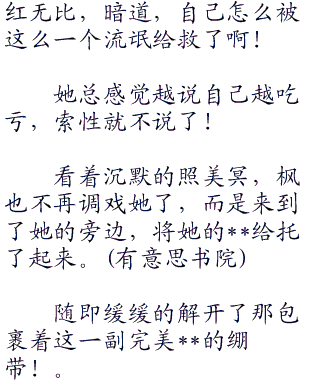 红无比，暗道，自己怎么被
这么一个流氓给救了啊！
她总感觉越说自己越吃
亏，索性就不说了！
看着沉默的照美冥，枫
也不再调戏她了，而是来到
了她的旁边，将她的**给托
了起来。(有意思书院)
随即缓缓的解开了那包
裹着这一副完美**的绷
带！。